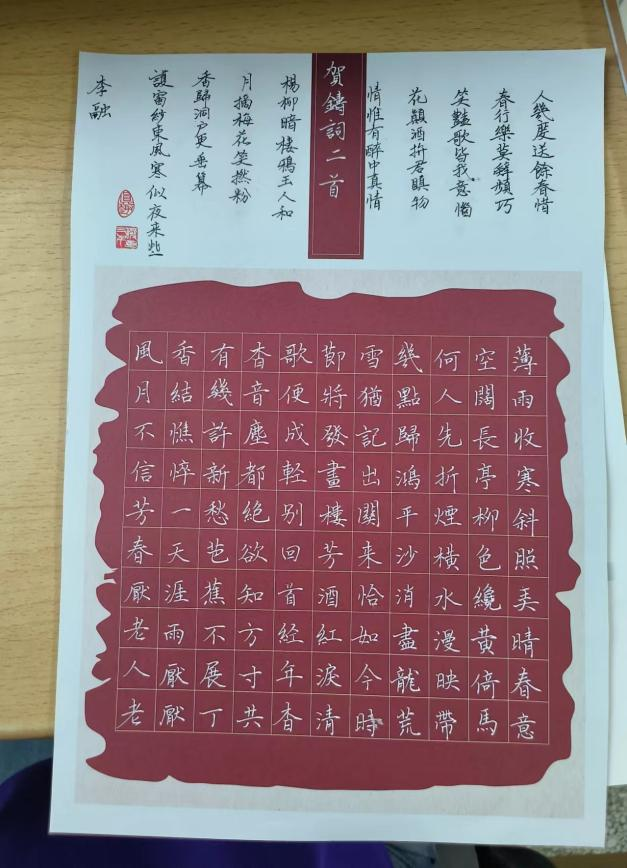 人幾度送餘春惜
春行樂莫辭頻巧
笑豔歌皆我意惱
花顛酒拚君瞋物
情惟有醉中真情
賀鑄詞二首
楊柳暗棲鴉玉人和
月摘梅花笑撚粉
香歸洞户更垂幕
護窗紗東風寒似夜来些
李融
薄雨收寒斜照美晴春意
空闊長亭柳色纔黃倚馬
何人先折煙橫水漫映帶
幾點歸鴻平沙消盡龍荒
雪猶記出關来恰如今時
節將發畫樓芳酒紅淚清
歌便成輕别回首経年杳
杳音塵都絕欲知方寸共
有幾許新愁芭蕉不展丁
香結憔悴一天涯雨厭厭
風月不信芳春厭老人老